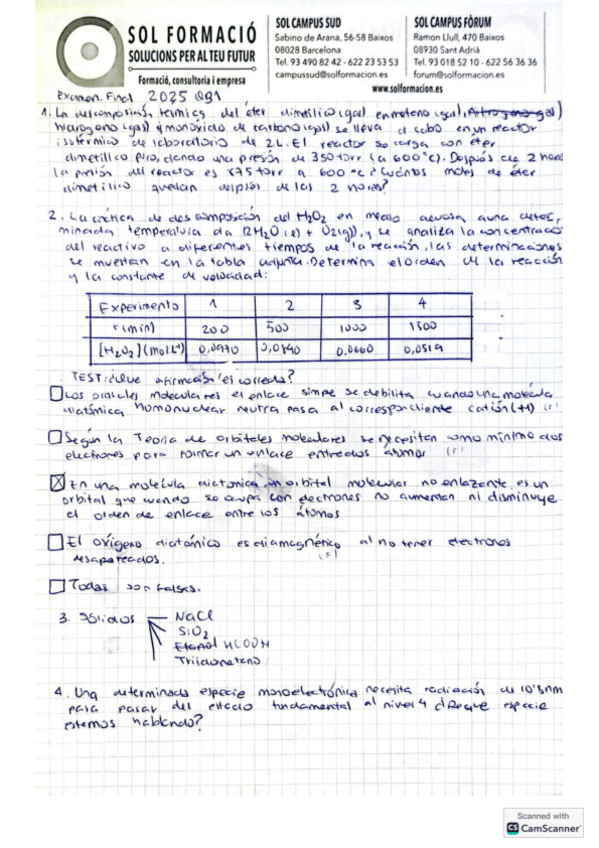 SOL FORMACIÓ
SOLUCIONS PER AL TEU FUTUR
Formació, consultoria i empresa
SOL CAMPUS SUD
Sabino de Arana, 56-58 Baixos
08028 Barcelona
Tel. 93 490 82 42 - 622 23 53 53
campussud@solformacion.es
SOL CAMPUS FÒRUM
Ramon Llull, 470 Baixos
08930 Sant Adrià
Tel. 93 018 52 10 - 622 56 36 36
forum@solformacion.es
www.solformacion.es
Examen Final 2025 QB1
1. La descomposición térmica del éter dimetílico (gas) en metano (gas),
hidrógeno (gas) y monóxido de carbono (gas) se lleva a cabo en un reactor
isotérmico de laboratorio de 2L. El reactor se carga con éter
dimetílico puro, dando una presión de 350 torr (a 600°C). Después de 2 horas
la presión del reactor es 875 torr a 600°C ¿Cuántos moles de éter
dimetílico quedan después de las 2 horas?
2. La cinética de descomposición del H2O2 en medio acuoso a una deter,
minada temperatura da (2H2O (l) + O2(g)), y se analiza la concentració
del reactivo a diferentes tiempos de la reacción, las determinaciones
se muestran en la tabla adjunta. Determina el orden de la reacción
y la constante de velocidad:
Experimento 1 2 3 4
t (min) 200 500 1000 1300
[H2O2] (mol·L⁻¹) 0,0970 0,0840 0.0660 0,0519
TEST: ¿Que afirmación/es correcta?
Los orbitales moleculares el enlace simple se debilita cuando una molécula
diatómica homonuclear neutra pasa al correspondiente catión (+1)
Según la Teoría de orbitales moleculares se necesitan como mínimo dos
electrones para formar un enlace entre dos átomos
X En una molécula diatómica un orbital molecular no enlazante, es un
orbital que cuando se ocupa con electrones no aumentan ni disminuye
el orden de enlace entre los átomos
El oxígeno diatómico es diamagnético al no tener electrones
desapareados.
Todas son falsas.
3. Sólidos NaCl
SiO2
Etanol HCOOH
Triiodometano
4. Una determinada especie monoelectrónica necesita radiación de 10'8nm
para pasar del estado fundamental al nivel 4 ¿De que especie
estamos hablando?
Scanned with
CS CamScanner